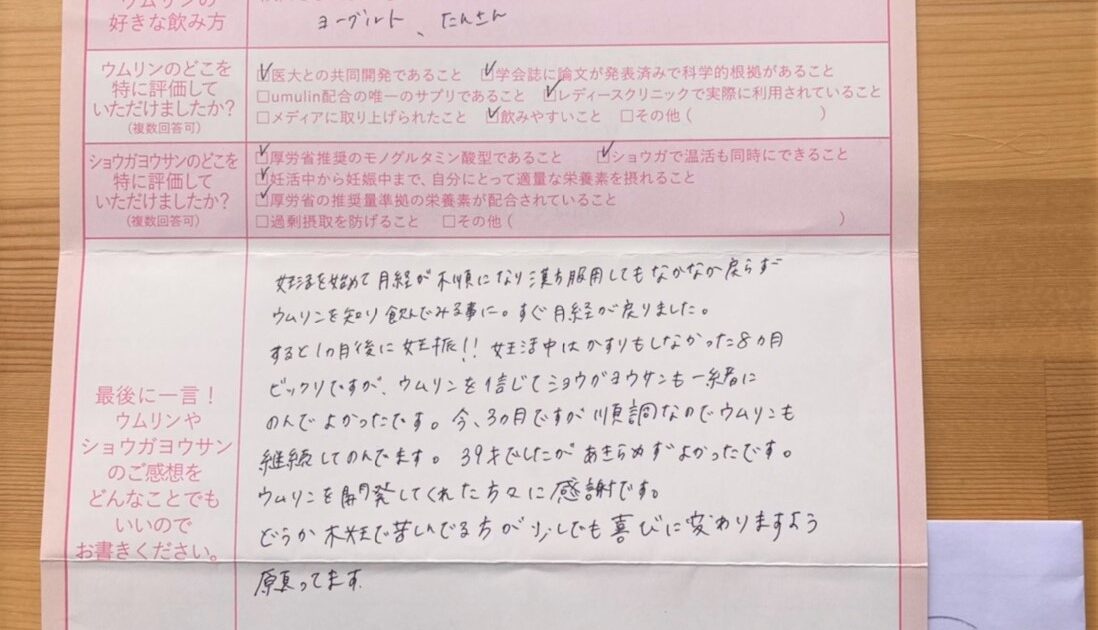 ウムリンの
好きな飲み方
ヨーグルト、たんさん
ウムリンのどこを
特に評価して
いただけましたか?
(複数回答可)
☑医大との共同開発であること ☑学会誌に論文が発表済みで科学的根拠があること
□umulin配合の唯一のサプリであること ☑レディースクリニックで実際に利用されていること
□メディアに取り上げられたこと ☑飲みやすいこと □その他( )
ショウガヨウサンのどこを
特に評価して
いただけましたか?
(複数回答可)
☑厚労省推奨のモノグルタミン酸型であること ☑ショウガで温活も同時にできること
☑妊活中から妊娠中まで、自分にとって適量な栄養素を摂れること
☑厚労省の推奨量準拠の栄養素が配合されていること
□過剰摂取を防げること □その他( )
最後に一言!
ウムリンや
ショウガヨウサン
のご感想を
どんなことでも
いいので
お書きください。
妊活を始めて月経が不順になり漢方服用してもなかなか戻らず
ウムリンを知り飲んでみる事に。すぐ月経が戻りました。
すると1ヵ月後に妊娠!! 妊活中はかすりもしなかった8ヵ月
ビックリですが、ウムリンを信じてショウガヨウサンも一緒に
のんでよかったです。今、3ヵ月ですが順調なのでウムリンも
継続してのんでます。39才でしたがあきらめずよかったです。
ウムリンを開発してくれた方々に感謝です。
どうか不妊で苦しんでる方が少しでも喜びに変わりますよう
願ってます.